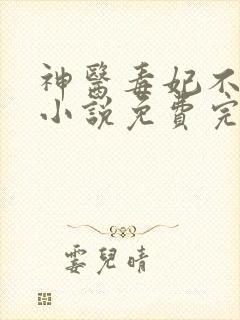 神醫毒妃不
小說免費完
霎兒晴